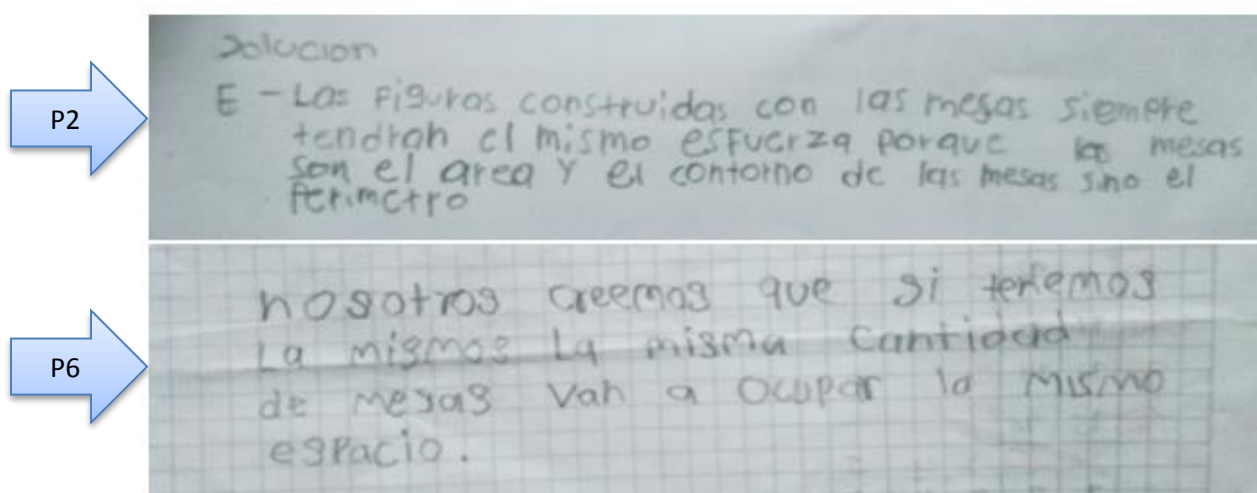 P2
Solucion
E - Las Figuras construidas con las mesas siempre
tendrah el mismo esfuerza porque las mesas
son el area y el contorno de las mesas sino el
Perimetro
P6
nosotros creemos que si tenemos
La mismos La misma Cantidad
de mesas Van a ocupar la mismo
espacio.